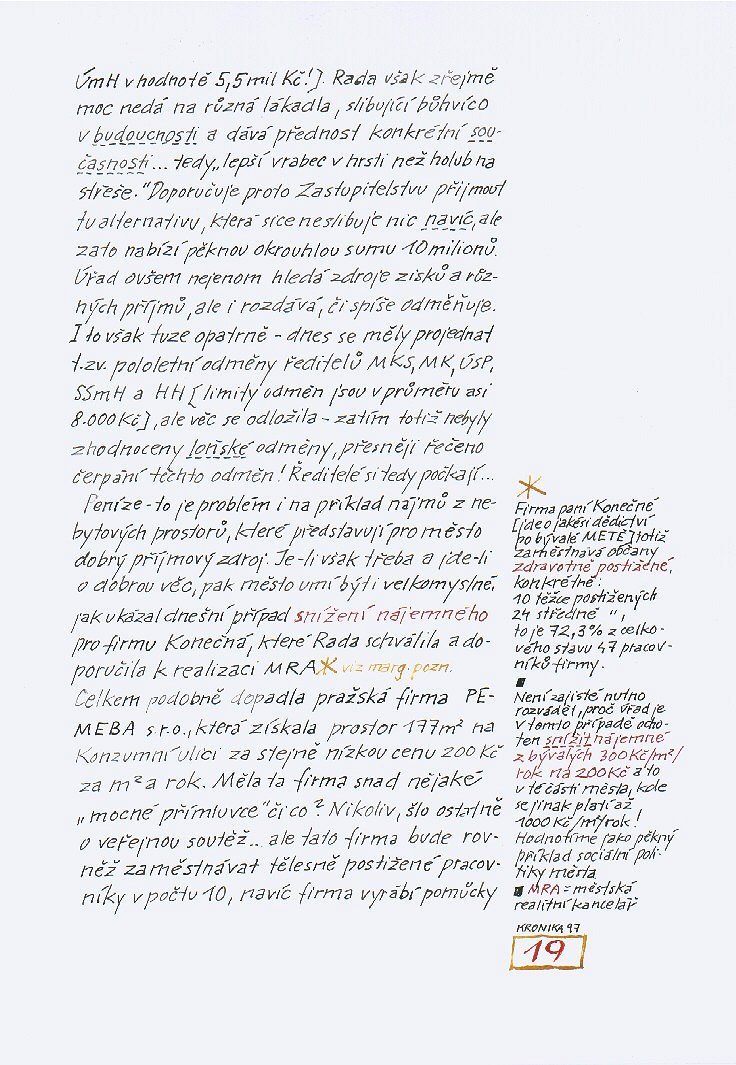 ÚmH v hodnotě 5,5 mil Kč!]. Rada však zřejmě
moc nedá na různá lákadla, slibující bůhvíco
v budoucnosti a dává přednost konkrétní sou-
časnosti... tedy „lepší vrabec v hrsti než holub na
střeše." Doporučuje proto Zastupitelstvu přijmout
tu alternativu, která sice neslibuje nic navíc, ale
zato nabízí pěknou okrouhlou sumu 10 milionů.
Úřad ovšem nejenom hledá zdroje zisků a růz-
ných příjmů, ale i rozdává, či spíše odměňuje.
I to však tuze opatrně - dnes se měly projednat
t.zv. pololetní odměny ředitelů MKS, MK, ÚSP,
SSmH a HH [limity odměn jsou v průměru asi
8.000 Kč], ale věc se odložila - zatím totiž nebyly
zhodnoceny loňské odměny, přesněji řečeno
čerpání těchto odměn! Ředitelé si tedy počkají...
Peníze - to je problém i na příklad nájmů z ne-
bytových prostorů, které představují pro město
dobrý příjmový zdroj. Je-li však třeba a jde-li
o dobrou věc, pak město umí být i velkomyslné,
jak ukázal dnešní případ snížení nájemného
pro firmu Konečná, které Rada schválila a do-
poručila k realizaci MRA * viz marg. pozn.
Celkem podobně dopadla pražská firma PE-
MEBA s.r.o., která získala prostor 177m² na
Konzumní ulici za stejně nízkou cenu 200 Kč
za m² a rok. Měla ta firma snad nějaké
„mocné přímluvce" či co? Nikoliv, šlo ostatně
o veřejnou soutěž.. ale tato firma bude rov-
něž zaměstnávat tělesně postižené pracov-
níky v počtu 10, navíc firma vyrábí pomůcky
*
Firma paní Konečné
[jde o jakési dědictví
po bývalé METĚ] totiž
zaměstnává občany
zdravotně postižené,
konkrétně:
10 těžce postižených
24 středně " ,
to je 72,3% z celko-
vého stavu 47 pracov-
níků firmy.
Není zajisté nutno
rozvádět, proč úřad je
v tomto případě ocho-
ten snížit nájemné
z bývalých 300 Kč/m²/
rok na 200 Kč a to
v té části města, kde
se jinak platí až
1000 Kč/m²/rok!
Hodnotíme jako pěkný
příklad sociální poli-
tiky města
MRA = městská
realitní kancelář
KRONIKA 97
19